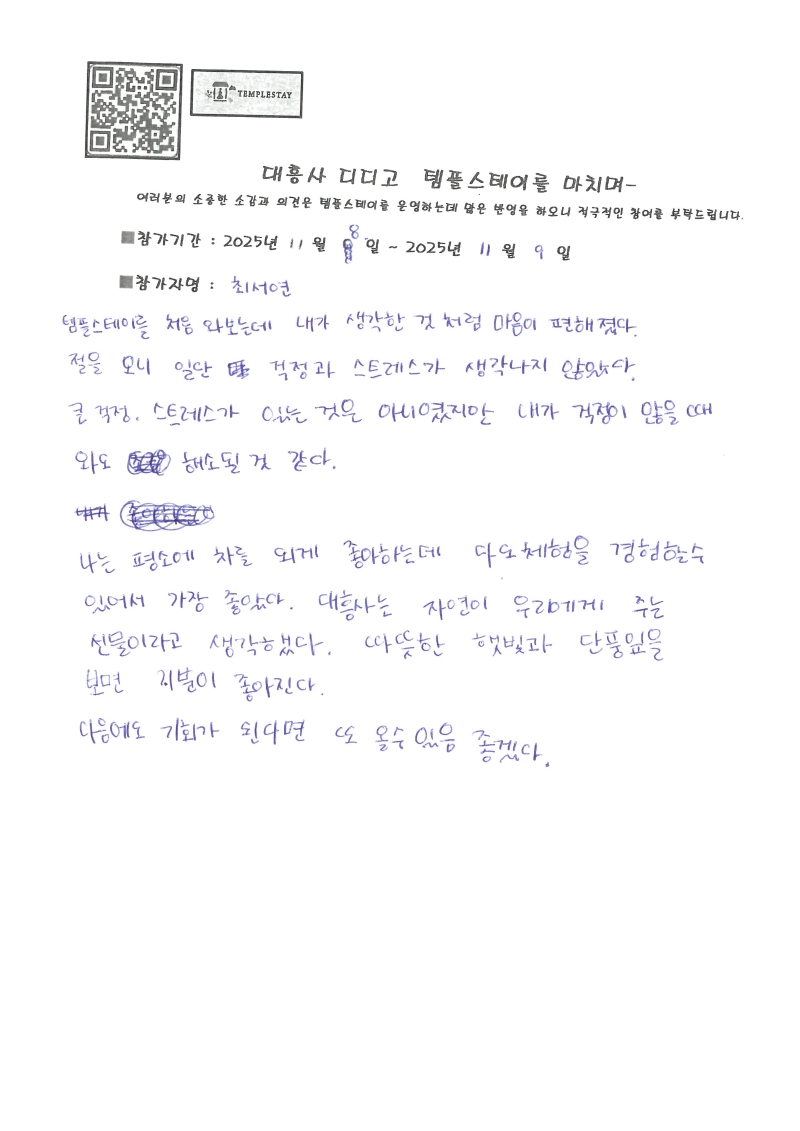 TEMPLESTAY
대흥사 디디고 템플스테이를 마치며-
여러분의 소중한 소감과 의견은 템플스테이를 운영하는데 많은 반영을 하오니 적극적인 참여를 부탁드립니다.
■참가기간 : 2025년 11 월 8 일 ~ 2025년 11 월 9 일
■참가자명 : 최서연
템플스테이를 처음 와보는데 내가 생각한 것 처럼 마음이 편해졌다.
절을 오니 일단 걱정과 스트레스가 생각나지 않았다.
큰 걱정, 스트레스가 있는 것은 아니였지만 내가 걱정이 많을 때
와도 해소될 것 같다.
내가
나는 평소에 차를 되게 좋아하는데 다도체험을 경험할수
있어서 가장 좋았다. 대흥사는 자연이 우리에게 주는
선물이라고 생각했다. 따뜻한 햇빛과 단풍잎을
보면 기분이 좋아진다.
다음에도 기회가 된다면 또 올수 있음 좋겠다.